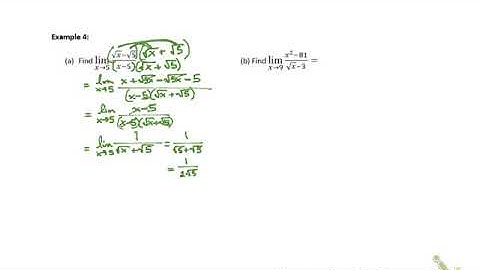 Example 4:
(a) Find lim x→5 (√x − √5)(√x + √5) / (x−5)(√x + √5)
= lim x→5 x + √5x − √5x − 5 / (x−5)(√x + √5)
= lim x→5 x−5 / (x−5)(√x+√5)
= lim x→5 1 / √x + √5 = 1 / √5+√5
= 1 / 2√5
(b) Find lim x→9 x² − 81 / √x − 3 =